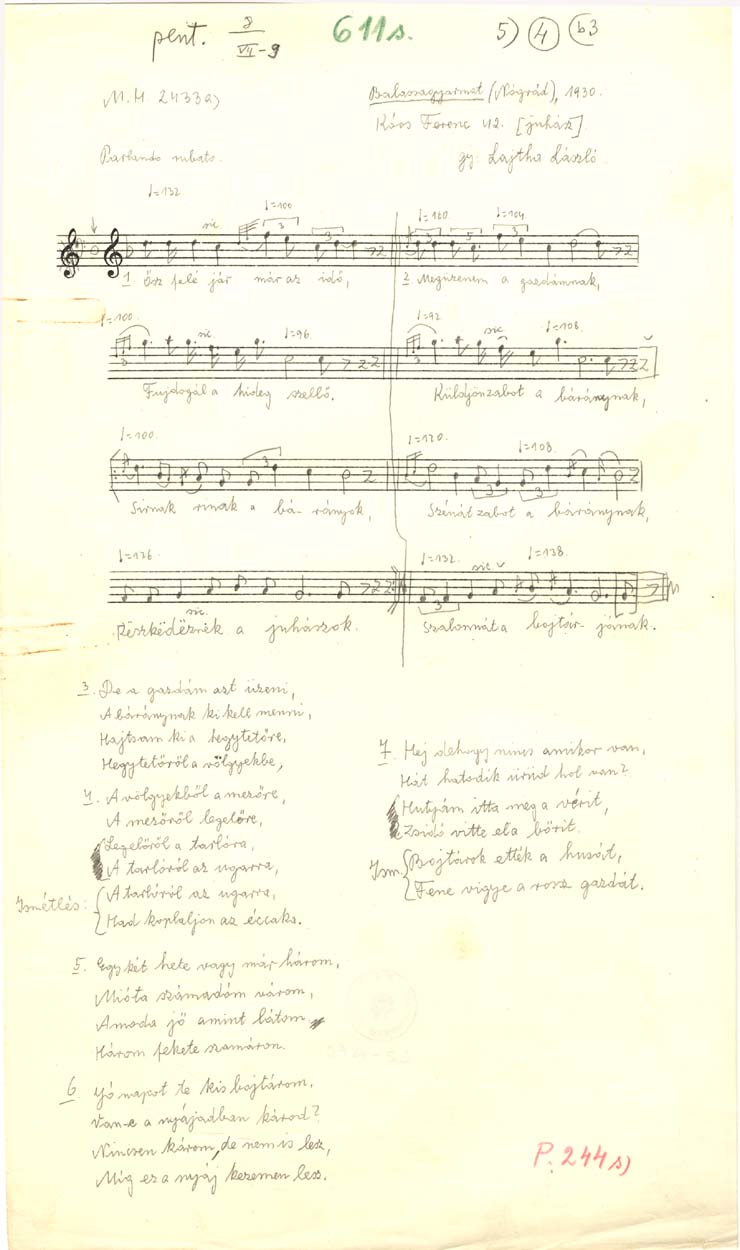 pent. 8/VII-9 611s. 5) 4 b3
M.H. 2433a)
Balassagyarmat (Nógrád), 1930.
Kóos Ferenc 42. [juhász]
Parlando rubato.
gy: Lajtha László
♩=132 sic ♩=100 3 3 ♩=160. 3 5 ♩=104 3
1. Ősz felé jár már az idő, 2. Megüzenem a gazdámnak,
♩=100 3 sic ♩=96. ♩=92 3 sic ♩=108.
Fujdogál a hideg szellő. Küldjön zabot a báránynak,
♩=100. 3 ♩=120. 3 ♩=108 3
Sirnak rinak a bá- rányok, Szénát zabot a báránynak,
♩=126 sic ♩=132. 3 sic ♩=138.
Késkëdëznek a juhászok. Szalonnát a bojtár- jának.
3. De a gazdám azt üzeni,
A báránynak ki kell menni,
Hajtsam ki a hegytetőre,
Hegytetőről a völgyekbe,
4. A völgyekből a mezőre,
A mezőről legelőre,
Legelőről a tarlóra,
A tarlóról az ugarra,
Ismétlés: A tarlóról az ugarra,
Had koplaljon az éccaka.
5. Egy két hete vagy már három,
Mióta számadóm várom,
Amoda jő amint látom
Három fekete szamáron.
6. Jó napot te kis bojtárom,
Van-e a nyájadban károd?
Nincsen károm, de nem is lesz,
Míg ez a nyáj kezemen lesz.
7. Hej dehogy nincs amikor van,
Hát hatodik ürüd hol van?
Kutyám itta meg a vérit,
Zsidó vitte el a bőrit.
Ism. Bojtárok ették a husát,
Fene vigye a rossz gazdát.
P. 244s)